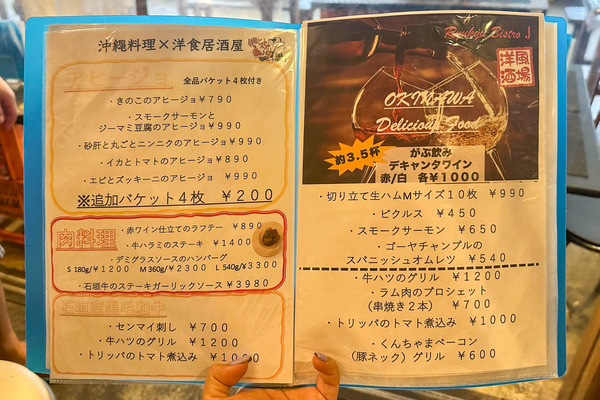 沖縄料理×洋食居酒屋
全品バケット4枚付き
・きのこのアヒージョ¥790
・スモークサーモンと
ジーマミ豆腐のアヒージョ¥990
・砂肝と丸ごとニンニクのアヒージョ¥990
・イカとトマトのアヒージョ¥890
・エビとズッキーニのアヒージョ¥990
※追加バケット4枚 ¥200
肉料理
・赤ワイン仕立てのラフテー ¥890
・牛ハラミのステーキ ¥1400
・デミグラスソースのハンバーグ
S 180g/¥1200 M 360g/¥2300 L 540g/¥3300
・石垣牛のステーキガーリックソース¥3980
・センマイ刺し ¥700
・牛ハツのグリル ¥1200
・トリッパのトマト煮込み
Ryukyu Bistro J
洋風酒場
OKINAWA
Delicious Food
約3.5杯
がぶ飲み
デキャンタワイン
赤/白 各¥1000
・切り立て生ハムMサイズ10枚 ¥990
・ピクルス ¥450
・スモークサーモン ¥650
・ゴーヤチャンプルの
スパニッシュオムレツ ¥540
・牛ハツのグリル ¥1200
・ラム肉のブロシェット
(串焼き2本) ¥700
・トリッパのトマト煮込み ¥1000
・くんちゃまベーコン
(豚ネック)グリル ¥600